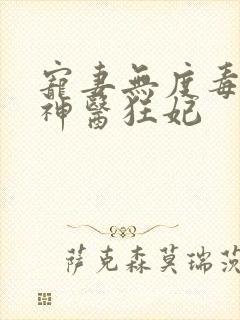 寵妻無度毒
神醫狂妃
萨克森莫瑞茨